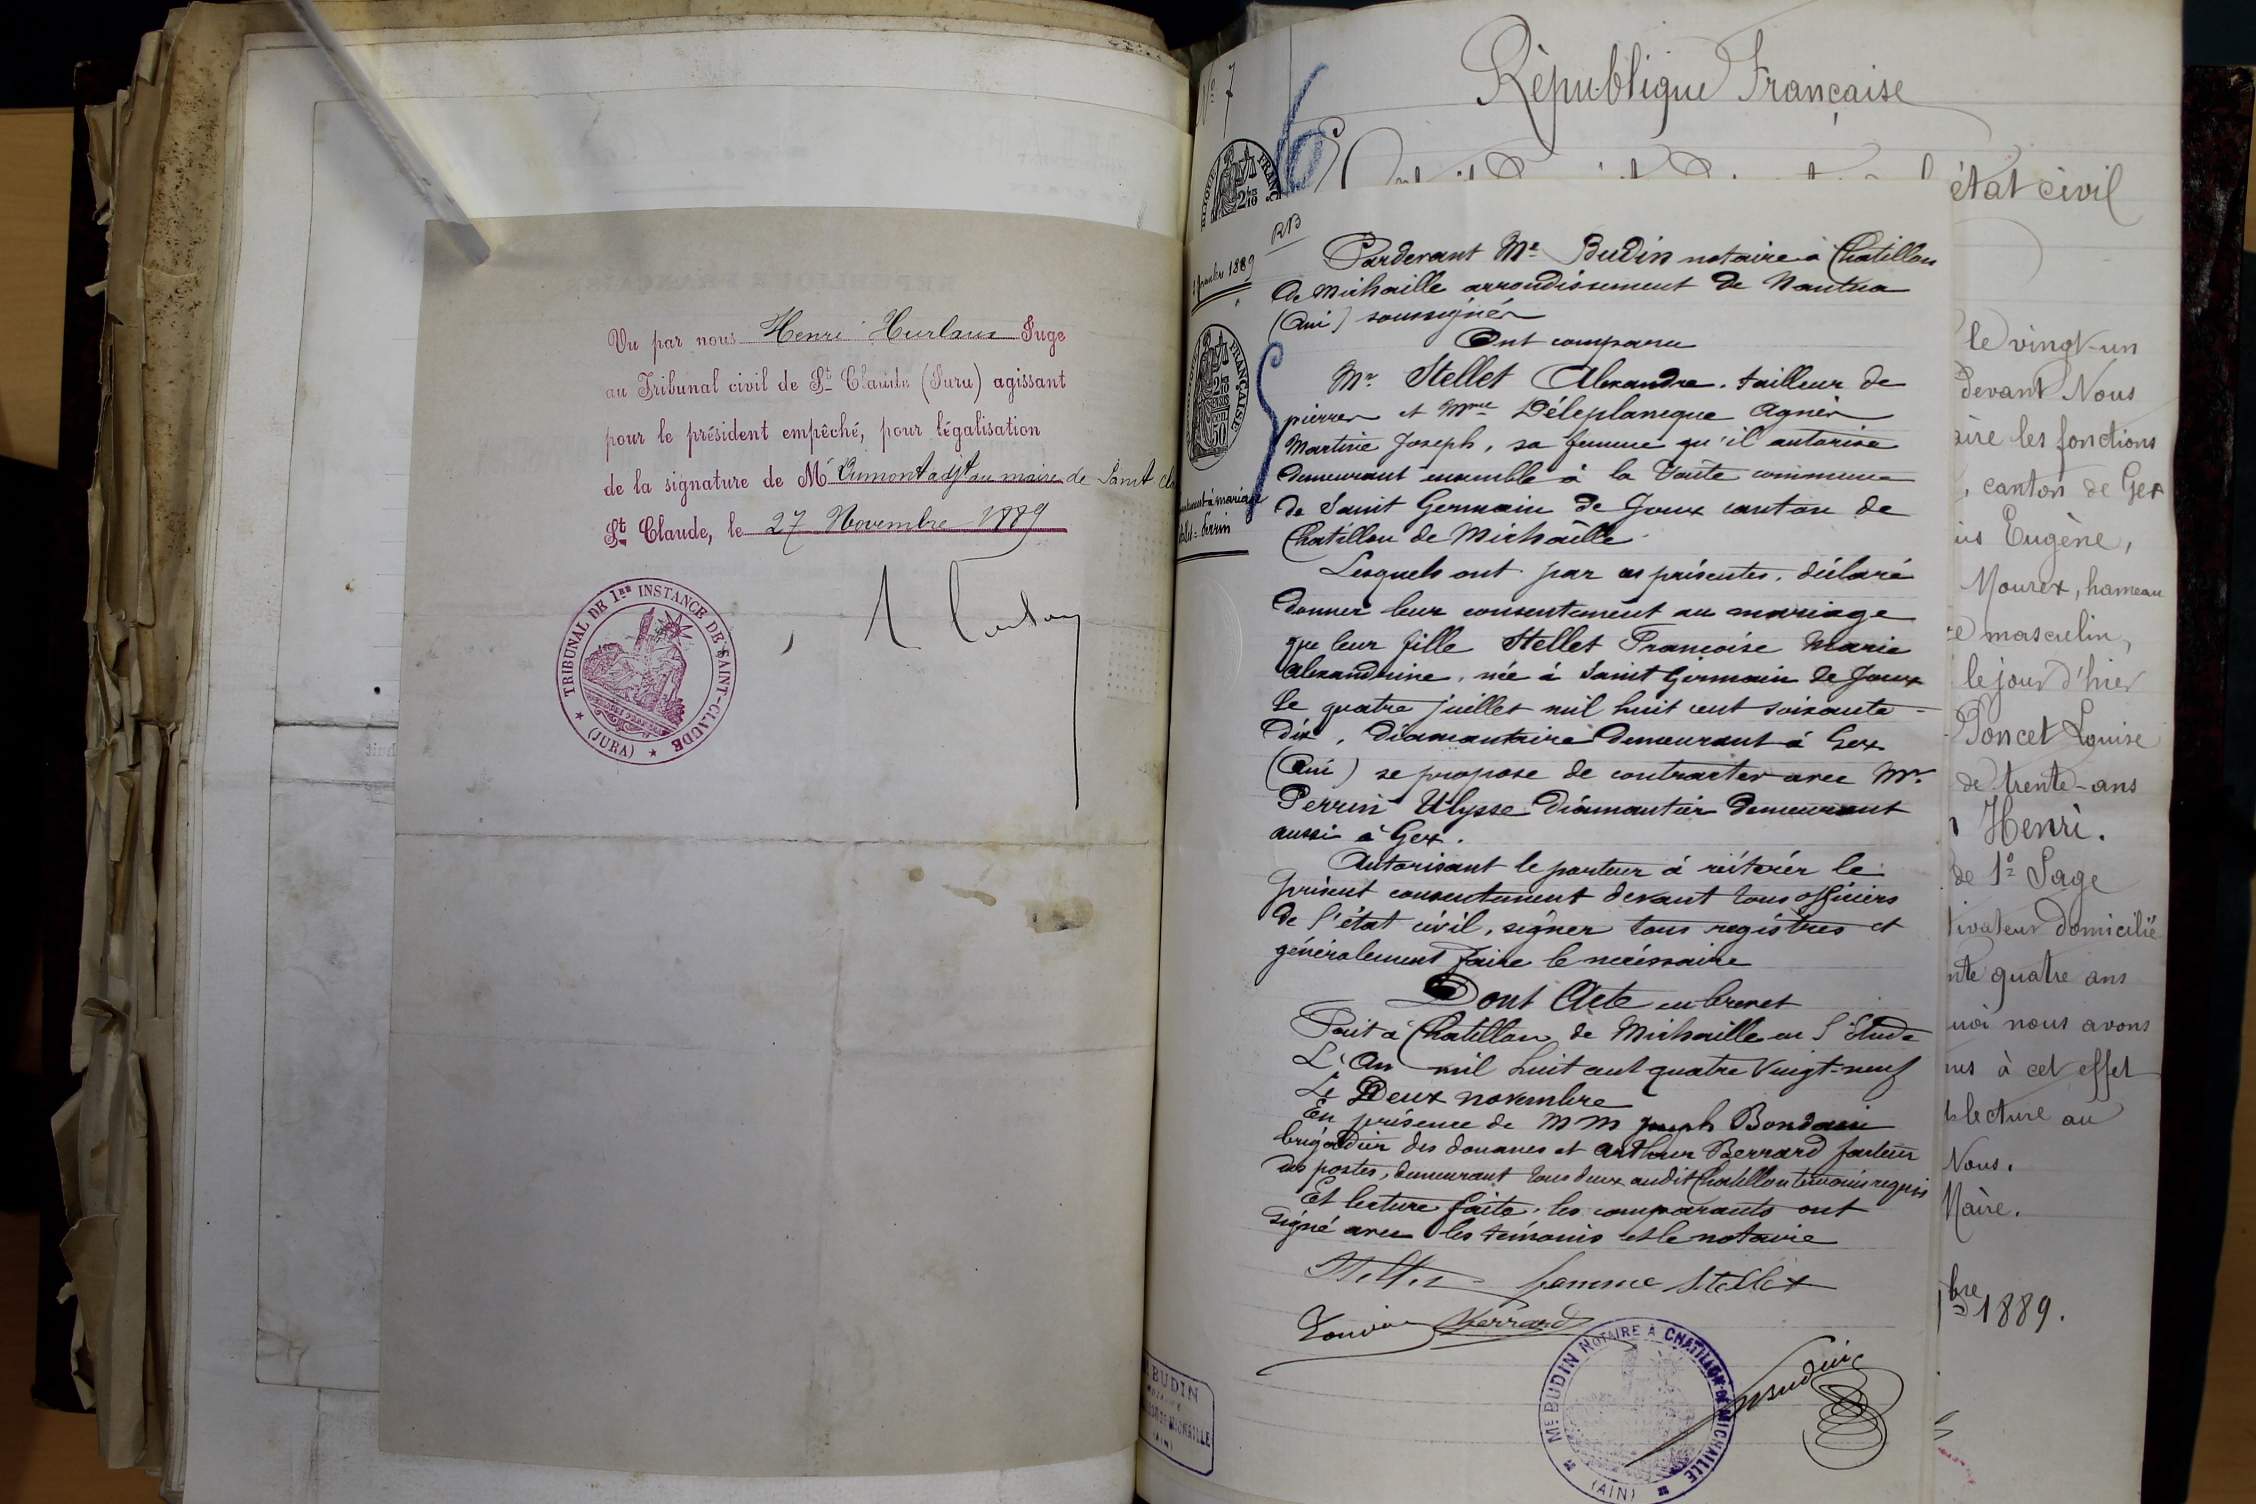 Vu par nous Henri Juge
au Tribunal civil de St Claude (Jura) agissant
pour le président empêché, pour légalisation
de la signature de Mr adjt au maire de Saint Cla
St Claude, le 27 Novembre 1889
TRIBUNAL DE 1RE INSTANCE DE SAINT-CLAUDE
(JURA)
No 7
6
République Française
état civil
FRANÇAISE
RB
1889
Pardevant Me Budin notaire à Chatillon
de Michaille arrondissement de Nantua
(Ain) soussigné
Ont comparu
Mr Stellet Alexandre, tailleur de
pierres et Mme Déleplancque Agnès
Martine Joseph, sa femme qu'il autorise
demeurant ensemble à la Voûte commune
de Saint Germain de Joux canton de
Chatillon de Michaille.
Lesquels ont par ces présentes, déclaré
donner leur consentement au mariage
que leur fille Stellet Françoise Marie
Alexandrine, née à Saint Germain de Joux
le quatre juillet mil huit cent soixante-
dix, diamantaire demeurant à Gex
(Ain) se propose de contracter avec Mr
Perrin Ulysse diamantier demeurant
aussi à Gex.
Autorisant le porteur à réitérer le
présent consentement devant tous officiers
de l'état civil, signer tous registres et
généralement faire le nécessaire
Dont Acte en brevet
Fait à Chatillon de Michaille en l'étude
L'An mil huit cent quatre vingt-neuf
Le Deux novembre
En présence de MM Joseph
brigadier des douanes et Arthur Bernard facteur
des postes, demeurant tous deux audit Chatillon témoins requis
Et lecture faite, les comparants ont
signé avec les témoins et le notaire
Stellet femme Stellet
Budin
Me BUDIN NOTAIRE A CHATILLON DE MICHAILLE
(AIN)
BUDIN
MICHAILLE
(AIN)
le vingt-un
devant Nous
aire les fonctions
, canton de Gex
is Eugène,
Mourex, hameau
e masculin,
le jour d'hier
Poncet Louise
de trente-ans
Henri.
de 1o Sage
tivateur domicilié
nte quatre ans
uoi nous avons
us à cet effet
lecture au
Nous.
Maire.
bre 1889.